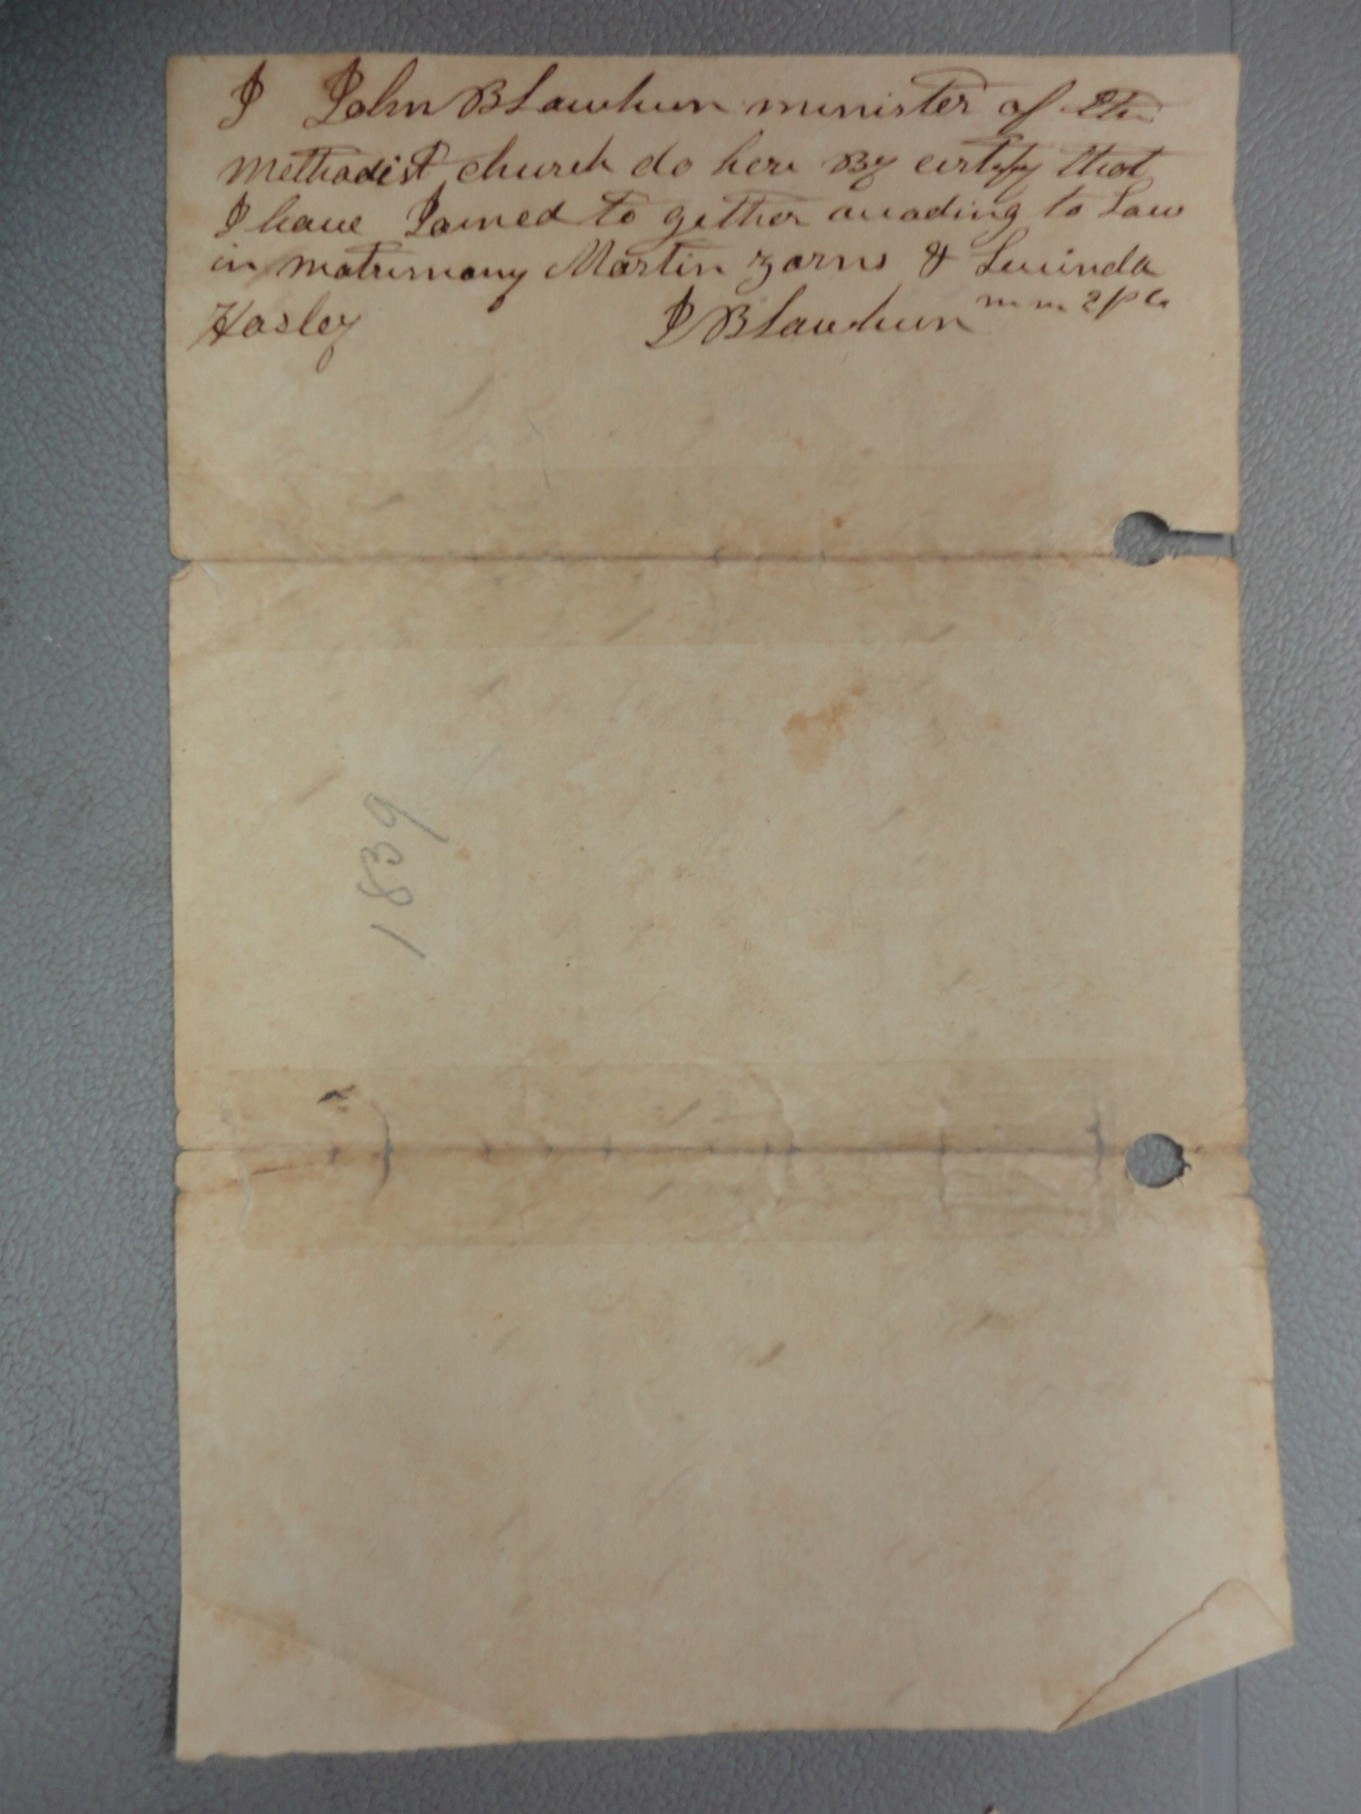 I John B Lawhun minister of the
Methodist church do here By certify that
I have Joined to gether according to Law
in matrimony Martin Zorns & Lucinda
Hosley J B Lawhun
1839